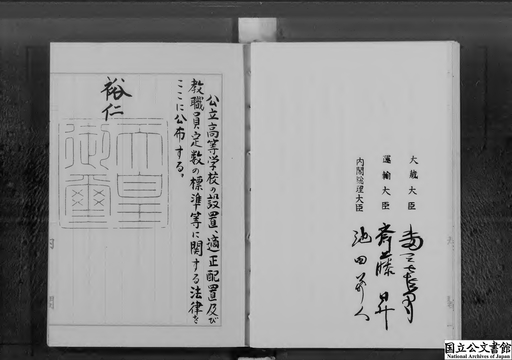 公立高等学校の設置、適正配置及び
教職員定数の標準等に関する法律を
ここに公布する。
裕仁
天皇
御璽
大蔵大臣
運輸大臣 斎藤昇
内閣総理大臣 池田勇人
国立公文書館
National Archives of Japan